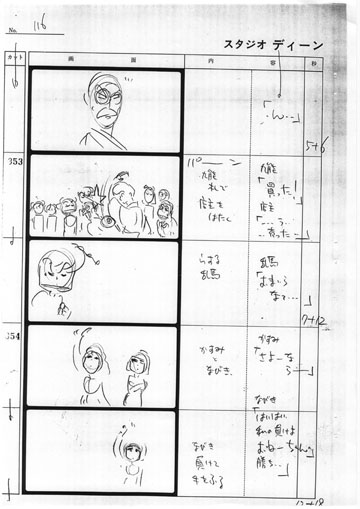 No. 116
スタジオ ディーン
カット
画
面
内
容
秒
「…ん…」
5+6
353
パーーン
九能
札で
店主を
はたく
九能
「買った!
店主
「……う…
…売った…」
らんま
乱馬
乱馬
「おまいら
なあ…」
7+12
354
かすみ
と
なびき、
かすみ
「さよーな
らー」
なびき
「はいはい
私の負けよ
おねーちゃん
勝ち…」
なびき
負けて
手をふる
12+18